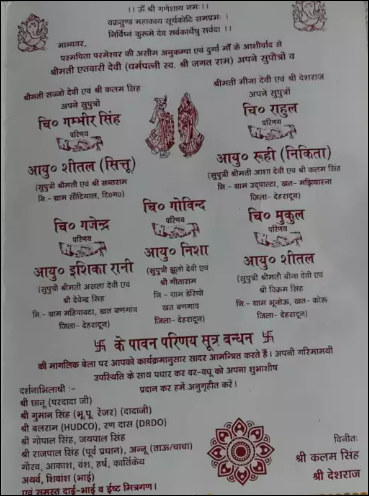 ।। ॐ श्री गणेशाय नमः ।।
वक्रतुण्ड महाकाय सूर्यकोटि समप्रभः ।
निर्विघ्नं कुरूमे देव सर्वकार्येषु सर्वदा ।।
मान्यवर,
परमपिता परमेश्वर की असीम अनुकम्पा एवं दुर्गा माँ के आशीर्वाद से
श्रीमती एतवारी देवी (धर्मपत्नी स्व. श्री जगत राम) अपने सुपौत्रों व
श्रीमती सज्जो देवी एवं श्री कलम सिंह
अपने सुपुत्रों
चि० गम्भीर सिंह
परिणय
आयु० शीतल (सित्तू)
(सुपुत्री श्रीमती एवं श्री सन्तराम
नि.- ग्राम सौंदियाल, टि०ग०)
श्रीमती मीना देवी एवं श्री देशराज
अपने सुपुत्रों
चि० राहुल
परिणय
आयु० रूही (निकिता)
(सुपुत्री श्रीमती आशा देवी एवं श्री कलम सिंह
नि.- ग्राम उद्पाल्टा, खत-
जिला- देहरादून)
चि० गजेन्द्र
परिणय
आयु० इशिका रानी
(सुपुत्री श्रीमती असला देवी एवं
श्री देवेन्द्र सिंह
नि.- ग्राम खत बणगांव
जिला- देहरादून)
चि० गोविन्द
परिणय
आयु० निशा
(सुपुत्री झूलो देवी एवं
श्री गीताराम
नि.- ग्राम डेरियो
खत बणगांव
जिला- देहरादून)
चि० मुकुल
परिणय
आयु० शीतल
(सुपुत्री श्रीमती बीना देवी एवं
श्री विक्रम सिंह
नि.- ग्राम भूनोऊ, खत- कोरू
जिला- देहरादून)
卐 के पावन परिणय सुत्र बन्धन 卐
की मांगलिक बेला पर आपको कार्यक्रमानुसार सादर आमन्त्रित करते हैं। अपनी गरिमामयी
उपस्थिति के साथ पधार कर वर-वधू को अपना शुभाशीष
प्रदान कर हमें अनुगृहीत करें।
दर्शनाभिलाषी :-
श्री छानू (परदादा जी)
श्री गुमान सिंह (भू.पू. रेंजर) (दादाजी)
श्री बलराम (HUDCO), रण दास (DRDO)
श्री गोपाल सिंह, जयपाल सिंह
श्री राजपाल सिंह (पूर्व प्रधान), अन्नू (ताऊ/चाचा)
गौरव, आकाश, वंश, हर्ष, कार्तिकेय
अथर्व, शिवांश (भाई)
एवं समस्त दाई-भाई व ईष्ट मित्रगण।
विनीतः
श्री कलम सिंह
श्री देशराज